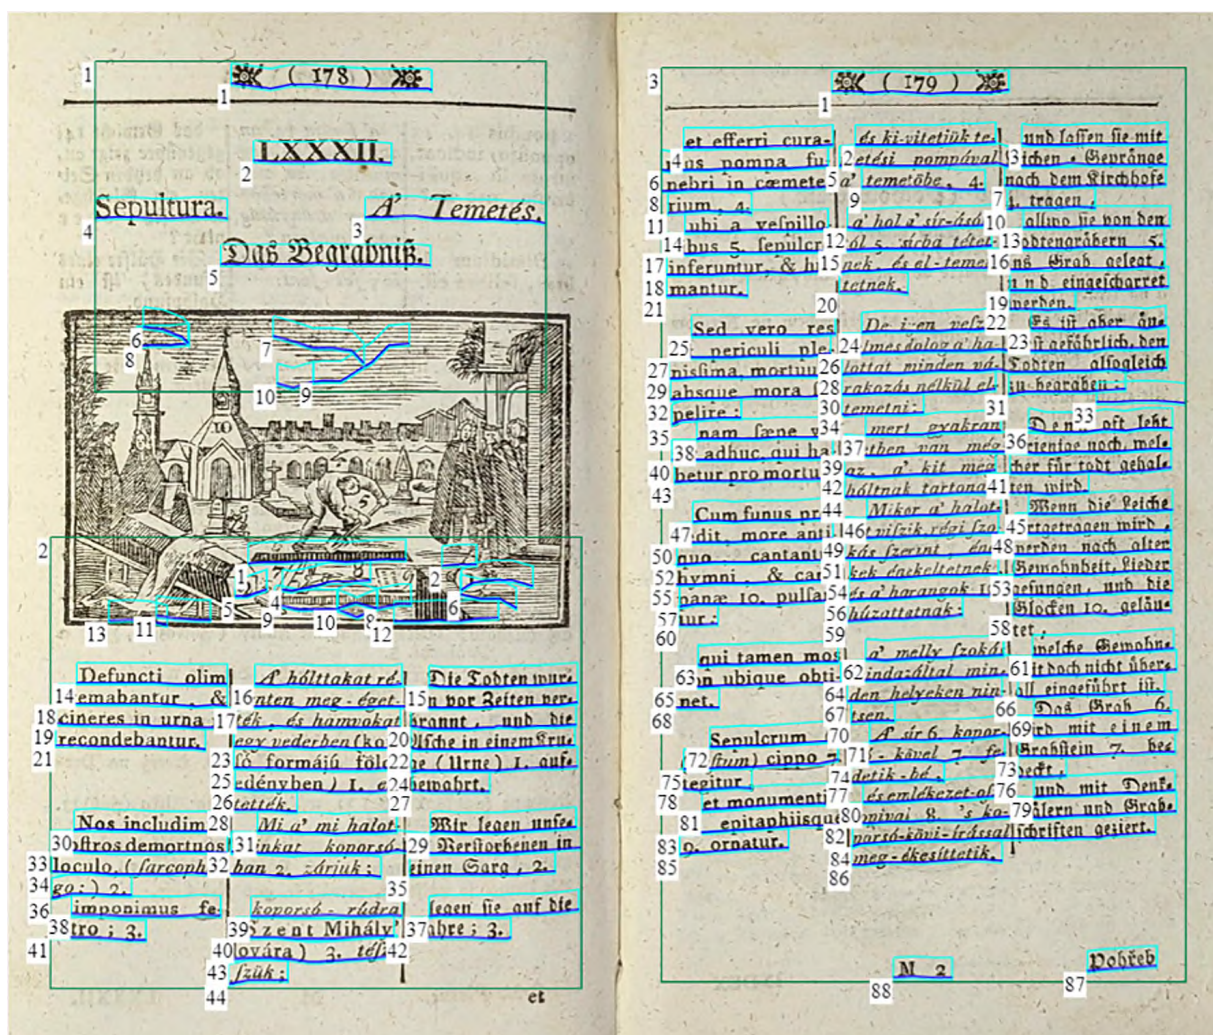 ( 178 )
LXXXII.
Sepultura. A' Temetés.
Das Begräbniß.
Defuncti olim
remabantur, &
cineres in urna
recondebantur.
Nos includim
nostros demortuos
loculo, (ſarcoph
go;) 2.
imponimus fe-
retro; 3.
A' hólttakat ré-
genten meg-éget-
ték, és hamvokat
egy vederben (kor
só formájú föld
edényben) 1. el
tették.
Mi a' mi halot-
tainkat koporsó
ban 2. zárjuk;
koporsó-rúdra
(Szent Mihály'
lovára) 3. téſz
ſzük;
Die Todten wur-
den vor Zeiten ver-
brannt, und die
Aſche in einem Kru-
ge (Urne) 1. auf-
bewahrt.
Wir legen unſe-
re Verſtorbenen in
einen Sarg, 2.
legen ſie auf die
Bahre; 3.
et
( 179 )
et efferri cura-
mus pompa fu-
nebri in cœmete
rium, 4.
ubi a veſpillo
nibus 5. ſepulcr
inferuntur, & hu
mantur.
Sed vero res
periculi ple-
niſſima, mortuum
absque mora ſ
pelire;
nam ſæpe v
adhuc, qui ha-
betur pro mortu
Cum funus pr
dit, more anti
quo, cantant
hymni, & cam
panæ 10. pulſan
tur;
qui tamen mos
non ubique obti-
net.
Sepulcrum
(buſtum) cippo 7
tegitur
et monumenti
epitaphiisque
9. ornatur.
és ki-vitetjük te-
metési pompával
a' temetőbe, 4.
a' hol a' sír-ásók
tól 5. sírba tétet-
nek, és el-temet
tetnek.
De igen veſze
delmes dolog a' ha-
lottat minden vá-
rakozás nélkül el-
temetni;
mert gyakran
éltben van még
az, a' kit meg
hóltnak tartonak
Mikor a' halot-
tat viſzik, régi ſzo
kás ſzerent, éne
kek énekeltetnek
és a' harangok 10
húzattatnak;
a' melly ſzokás
mindazáltal min-
den helyeken nin-
tsen.
A' sír 6. kopor-
só-kővel 7. fe-
detik-bé,
és emlékezet-ol
mivai 8. 's ko
porsó-kövi-írással
meg-ékesíttetik.
und laſſen ſie mit
Leichen-Gepränge
nach dem Kirchhofe
4. tragen,
allwo ſie von den
Todtengräbern 5.
ins Grab gelegt,
und eingeſcharret
werden.
Es iſt aber äu-
ßerſt gefährlich, den
Todten alſogleich
zu begraben;
Denn oft lebt
derjenige noch, wel-
cher für todt gehal-
ten wird.
Wenn die Leiche
fortgetragen wird,
werden nach alter
Gewohnheit, Lieder
geſungen, und die
Glocken 10. geläu-
tet,
welche Gewohn-
heit doch nicht über-
all eingeführt iſt.
Das Grab 6.
wird mit einem
Grabſtein 7. be-
deckt,
und mit Denk-
mälern und Grab-
ſchriften geziert.
M 2
Pohřeb